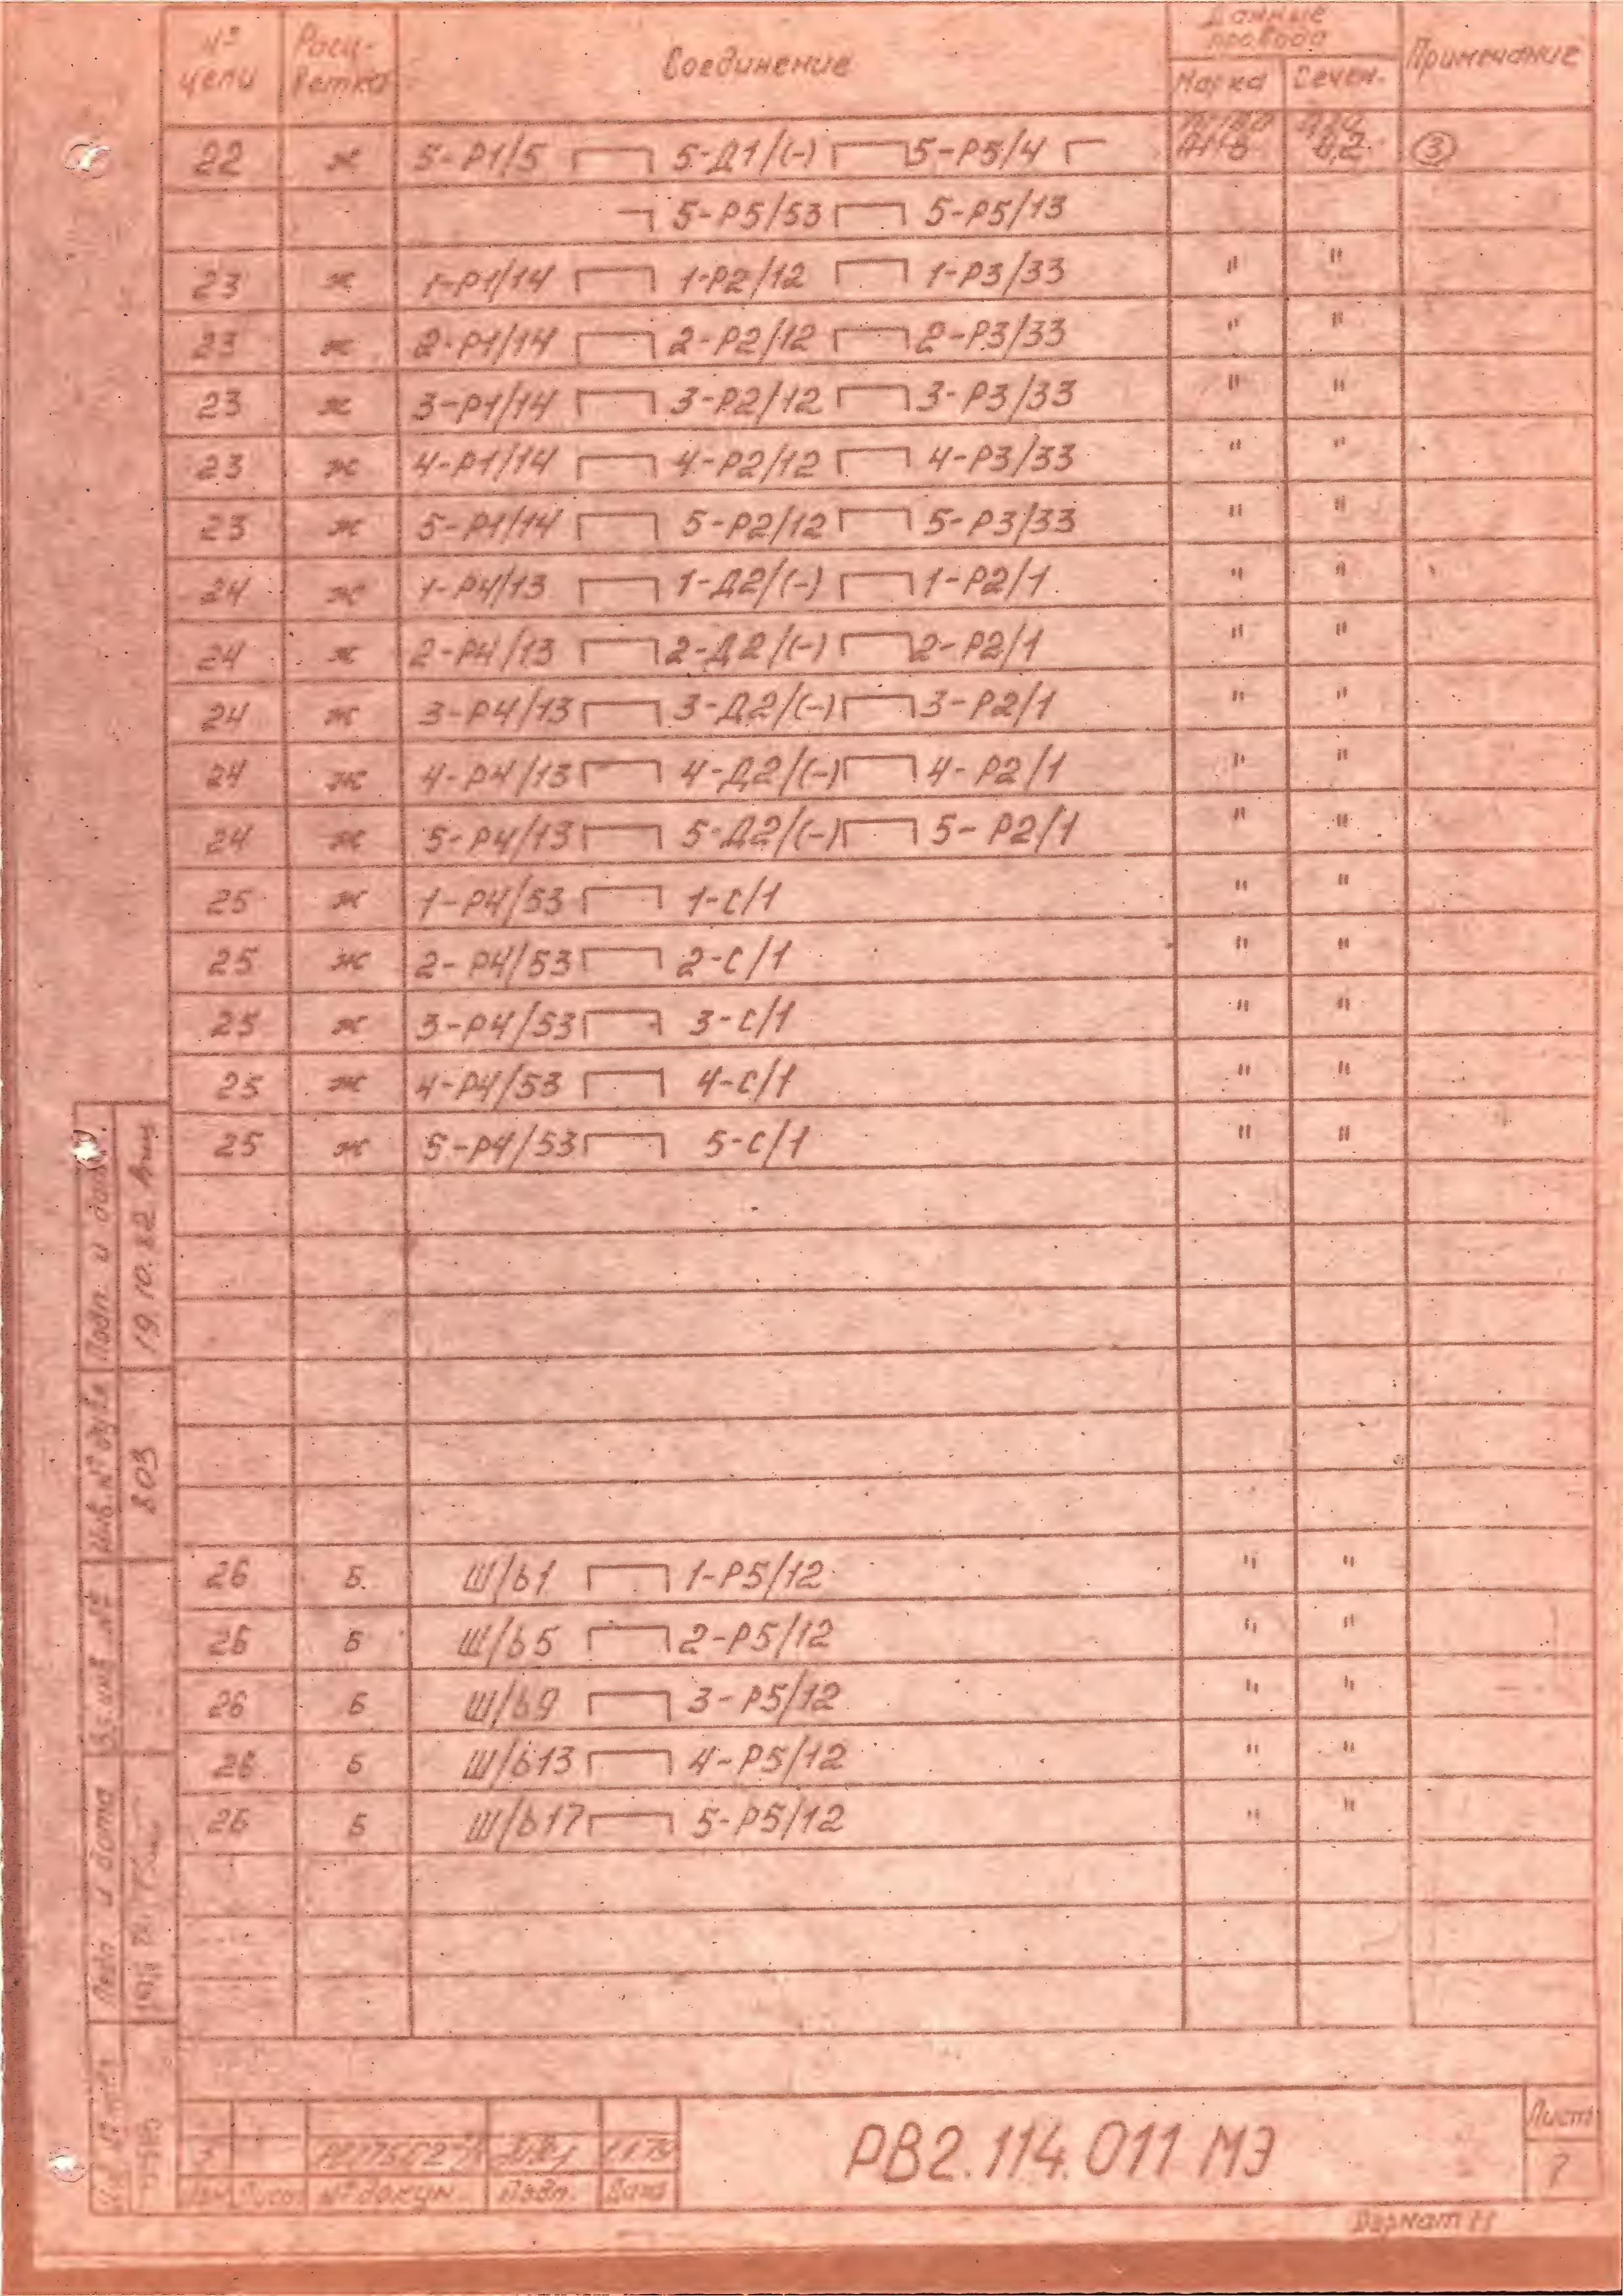 № цепи Расцветка Соединение Данные провода Примечание
Марка Сечен.
22 ж 5-Р1/5 5-Д1/(-) 5-Р5/4 0,2 ③
5-Р5/53 5-Р5/13
23 ж 1-Р1/14 1-Р2/12 1-Р3/33 " "
23 ж 2-Р1/14 2-Р2/12 2-Р3/33 " "
23 ж 3-Р1/14 3-Р2/12 3-Р3/33 " "
23 ж 4-Р1/14 4-Р2/12 4-Р3/33 " "
23 ж 5-Р1/14 5-Р2/12 5-Р3/33 " "
24 ж 1-Р4/13 1-Д2/(-) 1-Р2/1 " "
24 ж 2-Р4/13 2-Д2/(-) 2-Р2/1 " "
24 ж 3-Р4/13 3-Д2/(-) 3-Р2/1 " "
24 ж 4-Р4/13 4-Д2/(-) 4-Р2/1 " "
24 ж 5-Р4/13 5-Д2/(-) 5-Р2/1 " "
25 ж 1-Р4/53 1-С/1 " "
25 ж 2-Р4/53 2-С/1 " "
25 ж 3-Р4/53 3-С/1 " "
25 ж 4-Р4/53 4-С/1 " "
25 ж 5-Р4/53 5-С/1 " "
26 Б Ш/б1 1-Р5/12 " "
26 Б Ш/б5 2-Р5/12 " "
26 Б Ш/б9 3-Р5/12 " "
26 Б Ш/б13 4-Р5/12 " "
26 Б Ш/б17 5-Р5/12 " "
Подп. и дата
19.10.82
Инв. № дубл
803
Вз.инв №
Подп и дата
№ докум. Подп. Дата
РВ2.114.011 МЭ
Лист
7
Формат 11